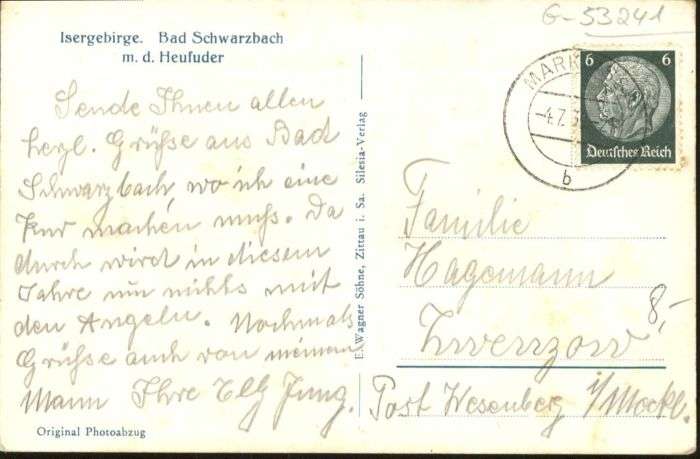 G-53241
Isergebirge. Bad Schwarzbach
m. d. Heufuder
MARK
-4.7.3
b
6 6
Deutsches Reich
Sende Ihnen allen
herzl. Grüße aus Bad
Schwarzbach, wo ich eine
Kur machen muss. Da
durch wird in diesem
Jahre nun nichts mit
den Angeln. Nochmals
Grüße auch von meinem
Mann Ihre Elly Jung.
Original Photoabzug
E. Wagner Söhne, Zittau i. Sa. Silesia-Verlag
Familie
Hagemann
8,-
Post Wesenberg i/Meckl.